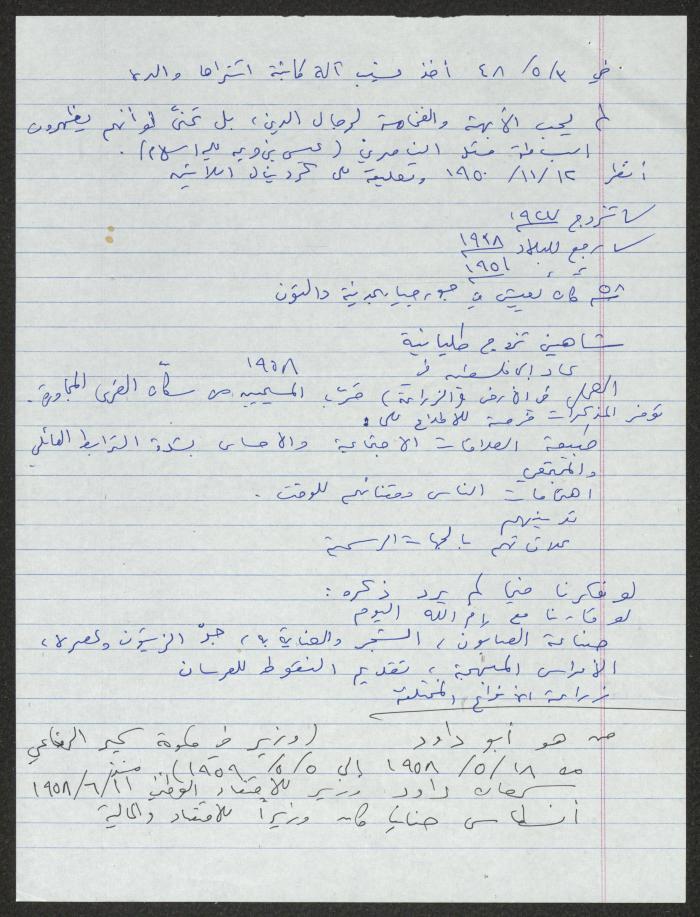 في ٣/ ٥/ ٤٨ أخذ نسيب آلة كاتبة اشتراها والده
لا يحب الأبهة والفخامة لرجال الدين، بل تمنى لو أنهم يظهرون
ببساطة مثل الناصري (عيسى بن مريم عليه السلام).
أنظر ١٢/ ١١/ ١٩٥٠ وتعليقه على كردينال اللاتين
تزوج ١٩٢٧
رجع للبلاد ١٩٢٨
١٩٥١
٥٨ كان يعيش في
شاهين تزوج طليانية
عاد إلى فلسطين في ١٩٥٨
العمل في الأرض (الزراعة) المسيحيين من سكان القرى المجاورة.
توفر المذكرات فرصة للاطلاع على:
طبيعة العلاقات الاجتماعية والاحساس بشدة الترابط العائلي
والمجتمعي
اهتمامات الناس للوقت.
تدينهم
علاقاتهم بالجهات الرسمية
لو فكرنا فيما لم يرد ذكره:
لو قارنا مع رام الله اليوم
صناعة الصابون، الشجر والعناية به، جدّ الزيتون وعصره،
الأعراس المبهجة، تقديم النقوط للعرسان
زراعة الأنواع المختلفة
من هو أبو داود (وزير في حكومة سمير الرفاعي
من ١٨/ ٥/ ١٩٥٨ إلى ٥/ ٥/ ١٩٥٩) منذ
سمعان داود وزير للاقتصاد الوطني ١١/ ٦/ ١٩٥٨
أنسطاس حنانيا كان وزيراً للاقتصاد والمالية